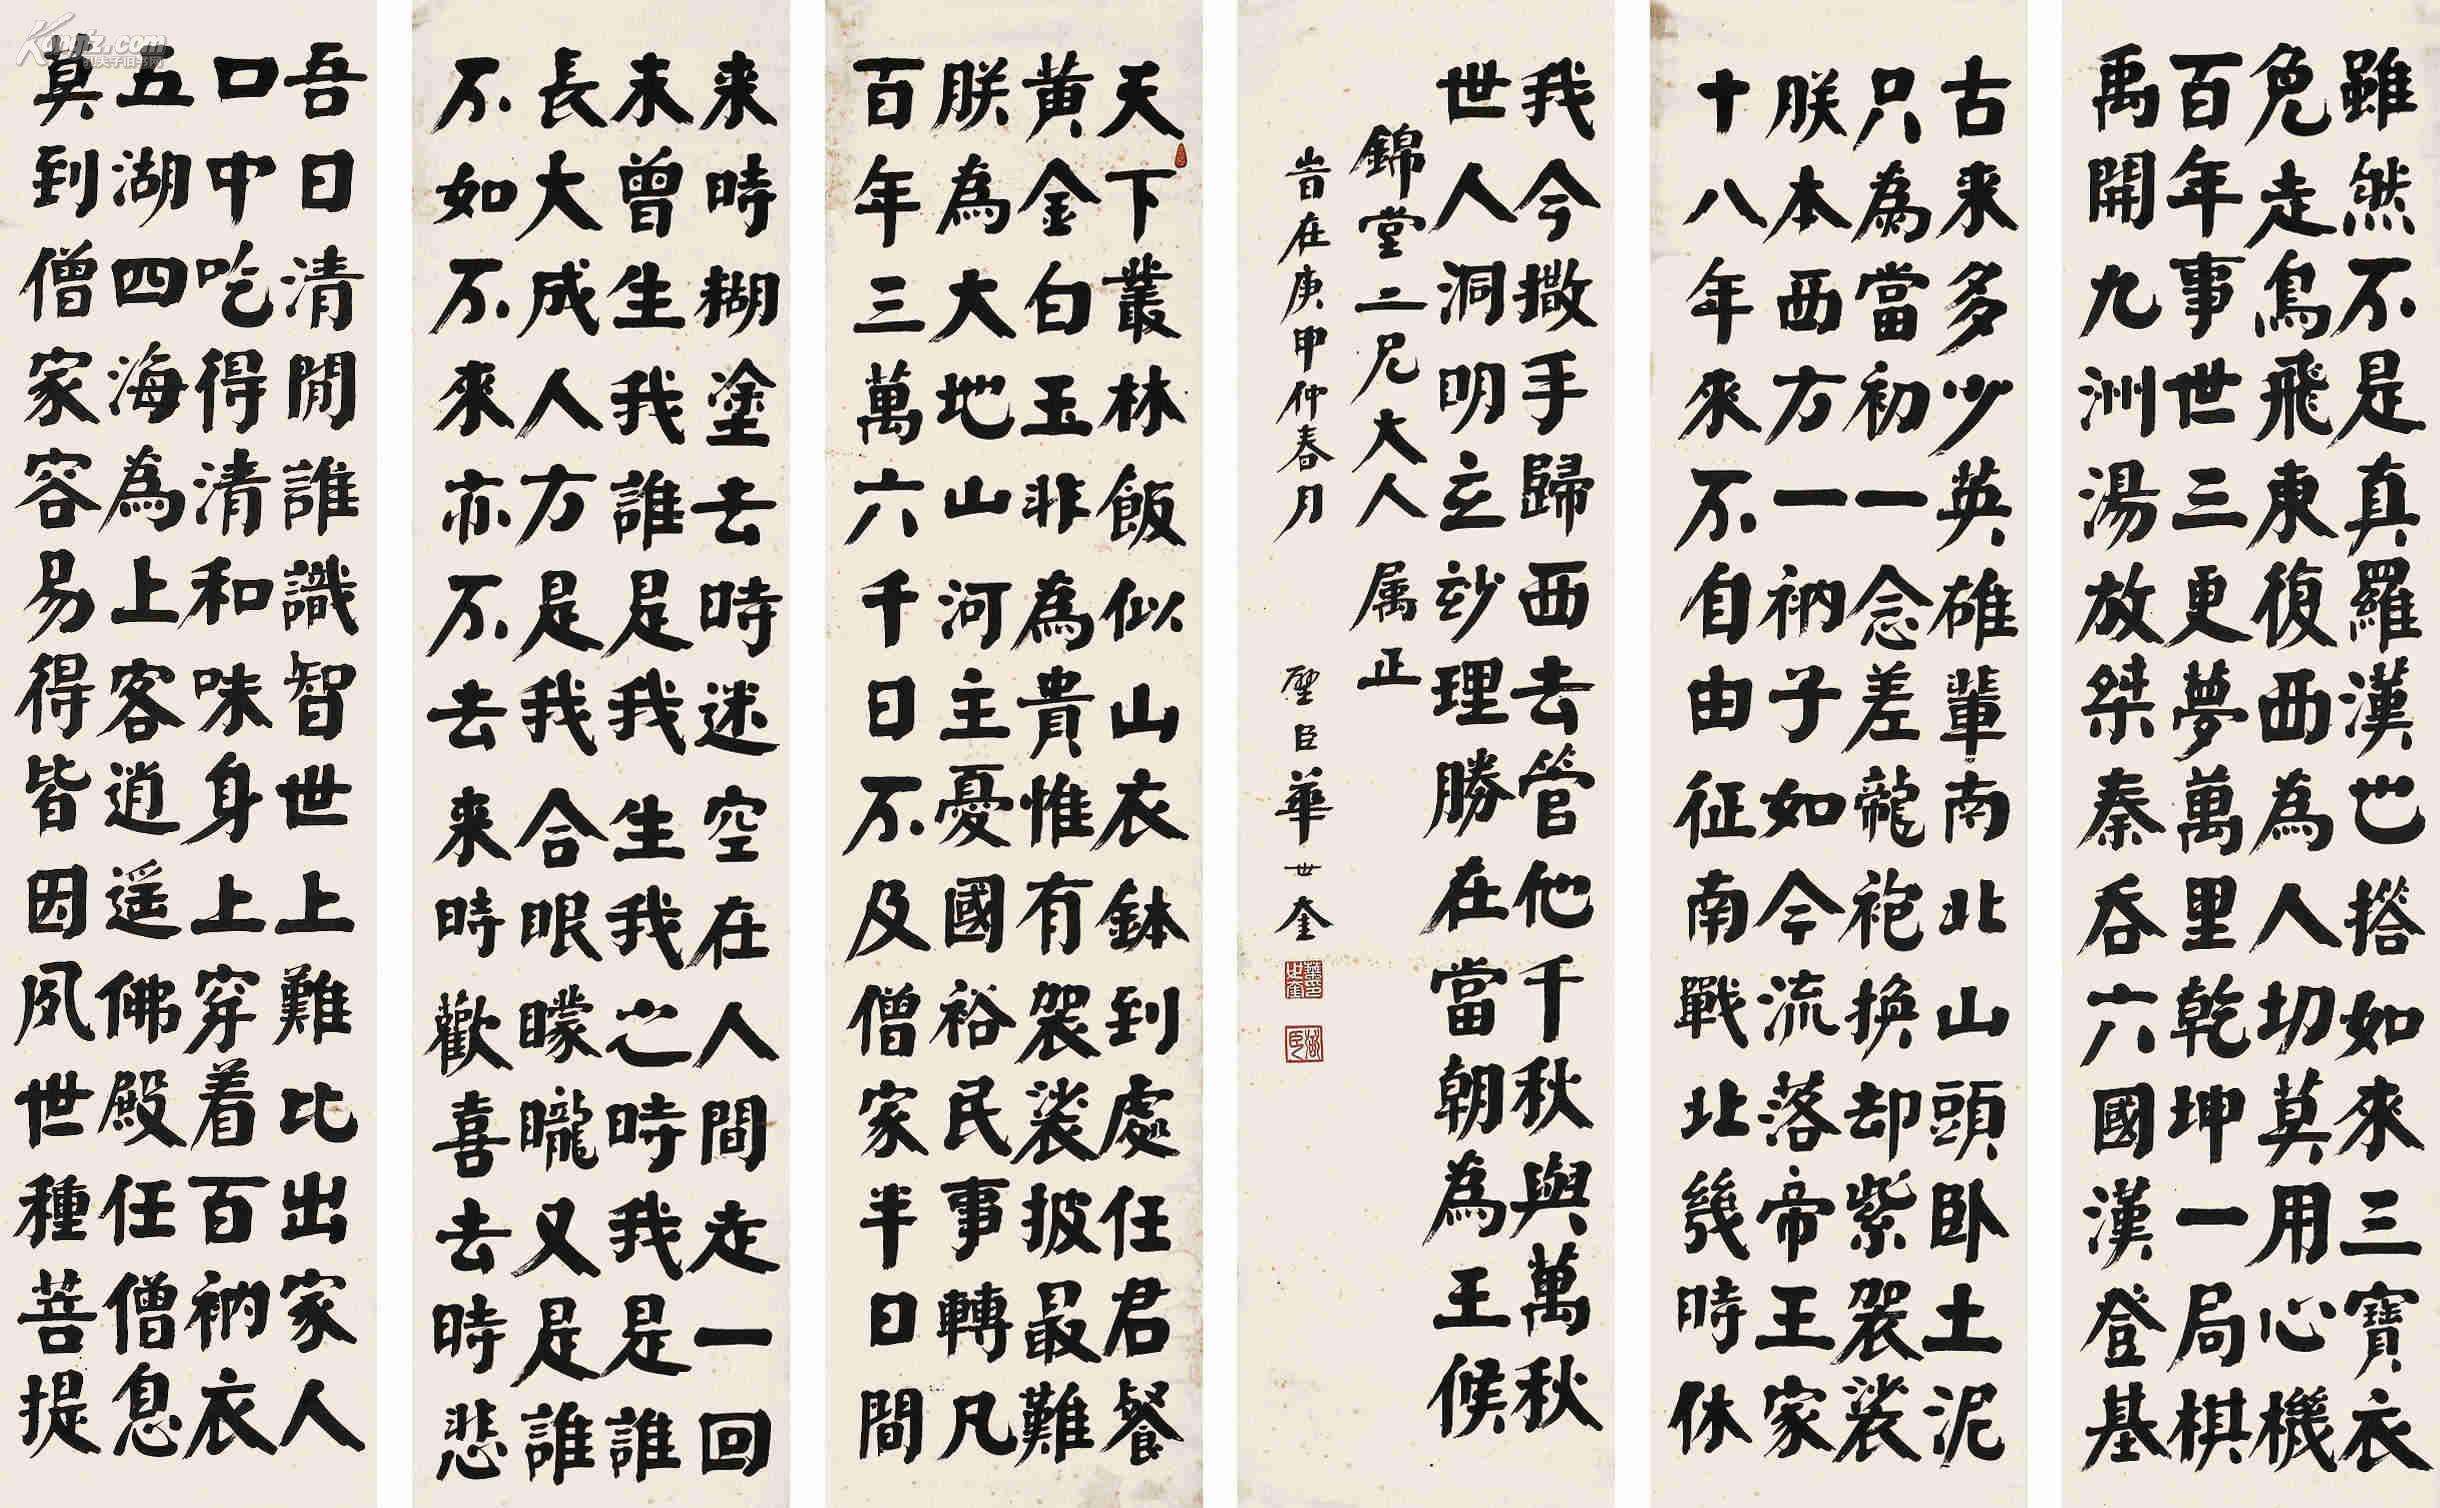 天下叢林飯似山衣鉢到處任君餐
黄金白玉非為貴惟有袈裟披最難
朕為大地山河主憂國裕民事轉凡
百年三萬六千日不及僧家半日間
来時糊塗去時迷空在人間走一回
未曾生我誰是我我生之時我是誰
長大成人方是我合眼朦朧又是誰
不如不來亦不去来時歡喜去時悲
吾曰清閒誰識智世上難比出家人
口中吃得清和味身上穿着百衲衣
五湖四海為上客逍遥佛殿任僧息
莫到僧家容易得皆因夙世種菩提
雖然不是真羅漢也搭如來三寶衣
兔走鳥飛東復西為人切莫用心機
百年事世三更夢萬里乾坤一局棋
禹開九洲湯放桀秦吞六國漢登基
古来多少英雄輩南北山頭卧土泥
只為當初一念差龍袍换却紫袈裟
朕本西方一衲子如今流落帝王家
十八年來不自由征南戰北幾時休
我今撒手歸西去管他千秋與萬秋
世人洞明玄妙理勝在當朝為王候
錦堂二兄大人 属正
旹在庚申仲春月 璧臣華世奎
Kongfz.com
孔夫子旧书网